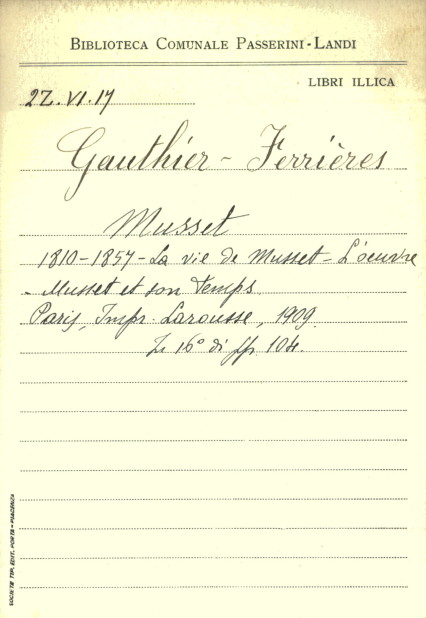 BIBLIOTECA COMUNALE PASSERINI-LANDI
LIBRI ILLICA
2Z.VI.17
Gauthier - Ferrières
Musset
1810-1857 - La vie de Musset - L'oeuvre
- Musset et son temps.
Paris, Impr. Larousse, 1909.
In 16° di pp. 104.
SOCIETÀ TIP. EDIT. PORTA - PIACENZA